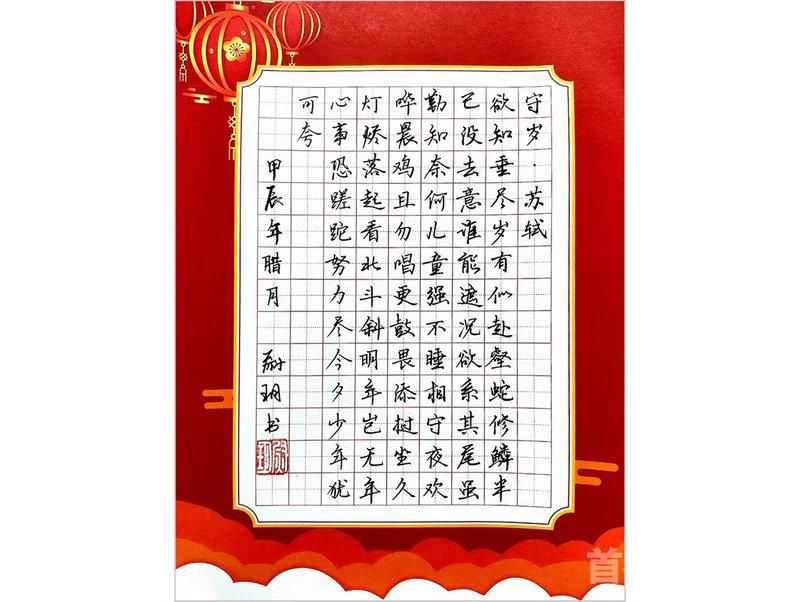 守岁·苏轼
欲知垂尽岁有似赴壑蛇修鳞半
已没去意谁能遮况欲系其尾虽
勤知奈何儿童强不睡相守夜欢
哗晨鸡且勿唱更鼓畏添挝坐久
灯烬落起看北斗斜明年岂无年
心事恐蹉跎努力尽今夕少年犹
可夸
甲辰年腊月 玥书
首